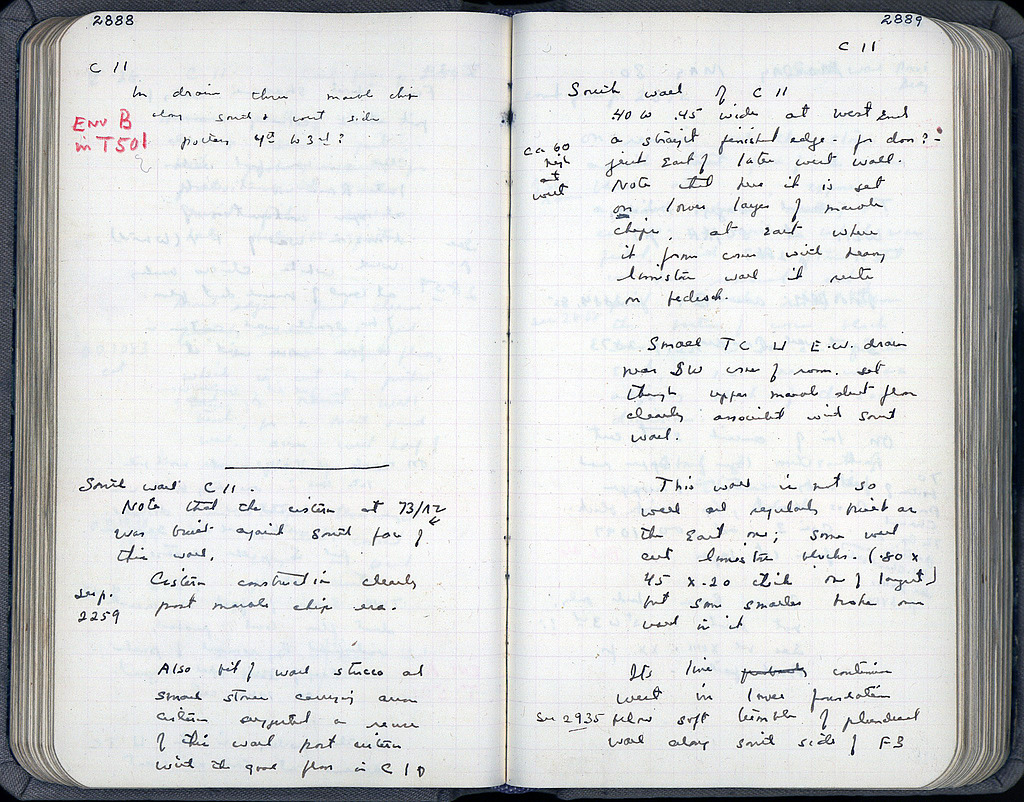 2888
C 11
In drain thru marble chip
along south & west side
pottery 4th to 3rd?
Env B
in T501
South wall C 11.
Note that the cistern at 73/ΛΖ
was built against south face of
this wall.
Cistern construction clearly
post marble chip era.
See p.
2259
Also bit of wall stucco and
small stones carrying over
cistern suggested a reuse
of this wall post cistern
with the good floor in C 10
2889
C 11
South wall of C 11
.40 to .45 wide at west end
a straight finished edge - for door? -
just East of later west wall.
ca 60
high
at
west
Note that here it is set
on lower layer of marble
chips, at East where
it forms corner with heavy
limestone wall it rests
on bedrock.
Small TC E.W. drain
near SW corner of room. set
through upper marble dust floor
clearly associated with south
wall.
This wall is not so
well and regularly built as
the East one; some well
cut limestone blocks. (.80 x
.45 x .20 thick one of largest)
but some smaller broken ones
used in it
Its line continues
west in lower foundation
See 2935 below soft tumble of plundered
wall along south side of F3